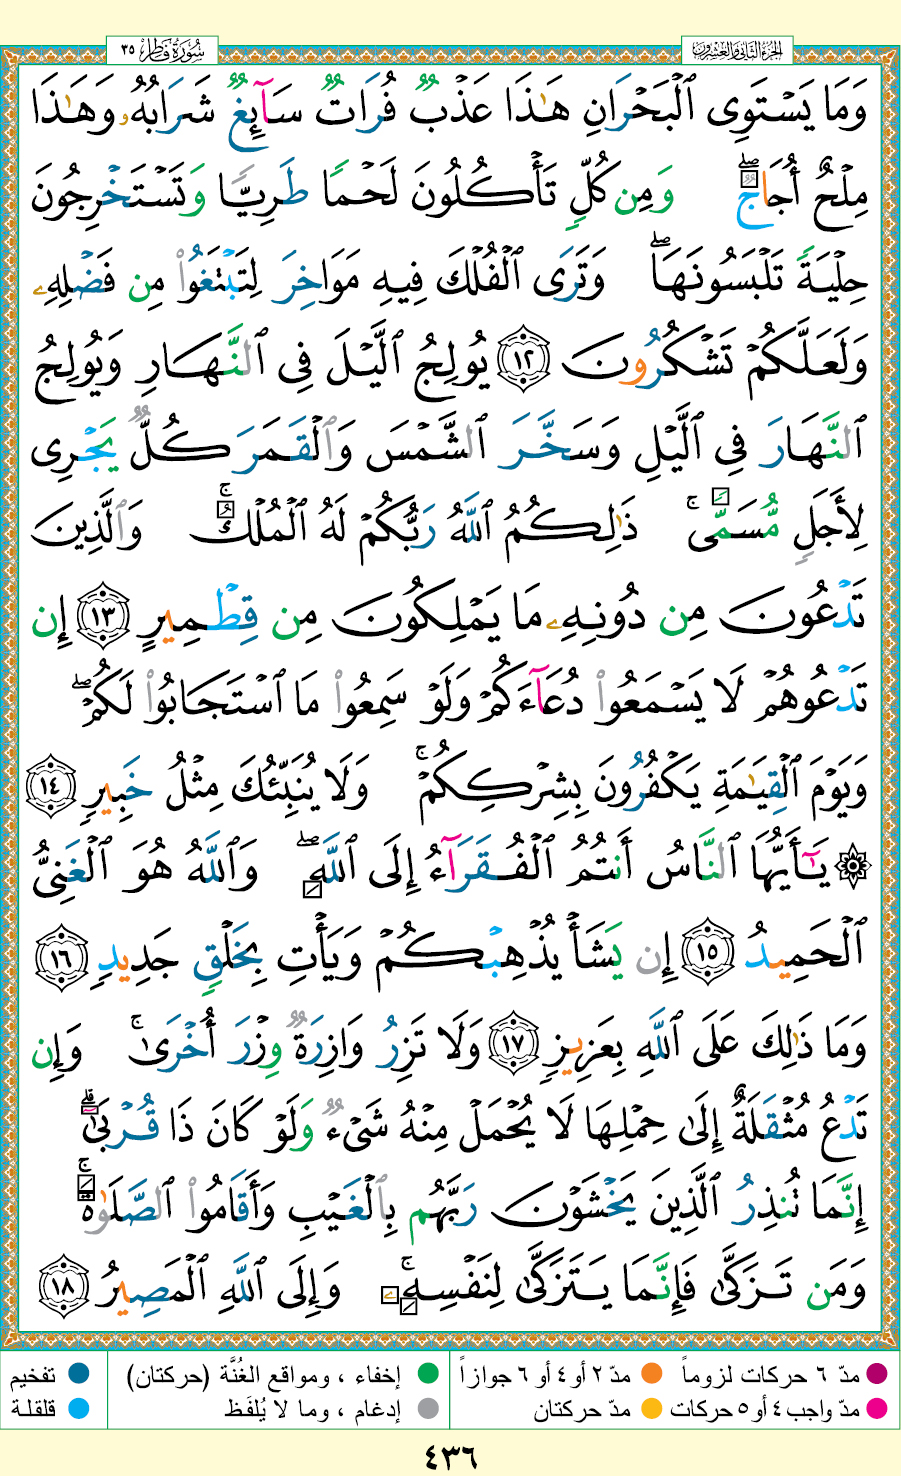 سُورَةُ فَاطِرٍ ٣٥
الجزء الثاني والعشرون
وَمَا يَسْتَوِى ٱلْبَحْرَانِ هَٰذَا عَذْبٌ فُرَاتٌ سَآئِغٌ شَرَابُهُۥ وَهَٰذَا
مِلْحٌ أُجَاجٌ ۖ وَمِن كُلٍّ تَأْكُلُونَ لَحْمًا طَرِيًّا وَتَسْتَخْرِجُونَ
حِلْيَةً تَلْبَسُونَهَا ۖ وَتَرَى ٱلْفُلْكَ فِيهِ مَوَاخِرَ لِتَبْتَغُوا۟ مِن فَضْلِهِۦ
وَلَعَلَّكُمْ تَشْكُرُونَ ١٢ يُولِجُ ٱلَّيْلَ فِى ٱلنَّهَارِ وَيُولِجُ
ٱلنَّهَارَ فِى ٱلَّيْلِ وَسَخَّرَ ٱلشَّمْسَ وَٱلْقَمَرَ كُلٌّ يَجْرِى
لِأَجَلٍ مُّسَمًّى ۚ ذَٰلِكُمُ ٱللَّهُ رَبُّكُمْ لَهُ ٱلْمُلْكُ ۚ وَٱلَّذِينَ
تَدْعُونَ مِن دُونِهِۦ مَا يَمْلِكُونَ مِن قِطْمِيرٍ ١٣ إِن
تَدْعُوهُمْ لَا يَسْمَعُوا۟ دُعَآءَكُمْ وَلَوْ سَمِعُوا۟ مَا ٱسْتَجَابُوا۟ لَكُمْ ۖ
وَيَوْمَ ٱلْقِيَٰمَةِ يَكْفُرُونَ بِشِرْكِكُمْ ۚ وَلَا يُنَبِّئُكَ مِثْلُ خَبِيرٍ ١٤
۞ يَٰٓأَيُّهَا ٱلنَّاسُ أَنتُمُ ٱلْفُقَرَآءُ إِلَى ٱللَّهِ ۖ وَٱللَّهُ هُوَ ٱلْغَنِىُّ
ٱلْحَمِيدُ ١٥ إِن يَشَأْ يُذْهِبْكُمْ وَيَأْتِ بِخَلْقٍ جَدِيدٍ ١٦
وَمَا ذَٰلِكَ عَلَى ٱللَّهِ بِعَزِيزٍ ١٧ وَلَا تَزِرُ وَازِرَةٌ وِزْرَ أُخْرَىٰ ۚ وَإِن
تَدْعُ مُثْقَلَةٌ إِلَىٰ حِمْلِهَا لَا يُحْمَلْ مِنْهُ شَىْءٌ وَلَوْ كَانَ ذَا قُرْبَىٰٓ ۗ
إِنَّمَا تُنذِرُ ٱلَّذِينَ يَخْشَوْنَ رَبَّهُم بِٱلْغَيْبِ وَأَقَامُوا۟ ٱلصَّلَوٰةَ ۚ
وَمَن تَزَكَّىٰ فَإِنَّمَا يَتَزَكَّىٰ لِنَفْسِهِۦ ۚ وَإِلَى ٱللَّهِ ٱلْمَصِيرُ ١٨
مدّ ٦ حركات لزوماً مدّ ٢ أو ٤ أو ٦ جوازاً إخفاء ، ومواقع الغُنَّة (حركتان) تفخيم
مدّ واجب ٤ أو ٥ حركات مدّ حركتان إدغام ، وما لا يُلفَظ قلقلة
٤٣٦